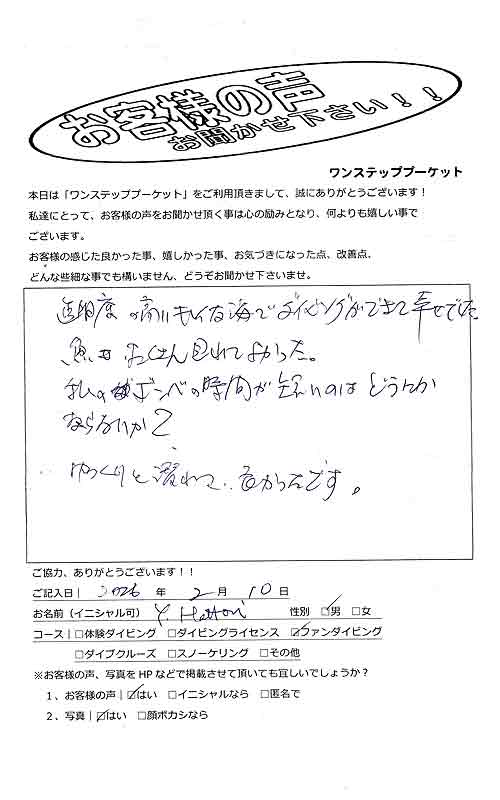 お客様の声
お聞かせ下さい！！
ワンステッププーケット
本日は「ワンステッププーケット」をご利用頂きまして、誠にありがとうございます！
私達にとって、お客様の声をお聞かせ頂く事は心の励みとなり、何よりも嬉しい事で
ございます。
お客様の感じた良かった事、嬉しかった事、お気づきになった点、改善点、
どんな些細な事でも構いません、どうぞお聞かせ下さいませ。
透明度の高いキレイな海でダイビングができて幸せでした
魚もたくさん見れてよかった。
私のボンベの時間が短いのはどうにか
ならないか？
ゆっくりと潜れて、良かったです。
ご協力、ありがとうございます！！
ご記入日｜ 2026 年 2 月 10 日
お名前（イニシャル可） Y. Hattori 性別 ☑男 □女
コース｜□体験ダイビング □ダイビングライセンス ☑ファンダイビング
□ダイブクルーズ □スノーケリング □その他
※お客様の声、写真を HP などで掲載させて頂いても宜しいでしょうか？
１、お客様の声｜☑はい □イニシャルなら □匿名で
２、写真｜☑はい □顔ボカシなら